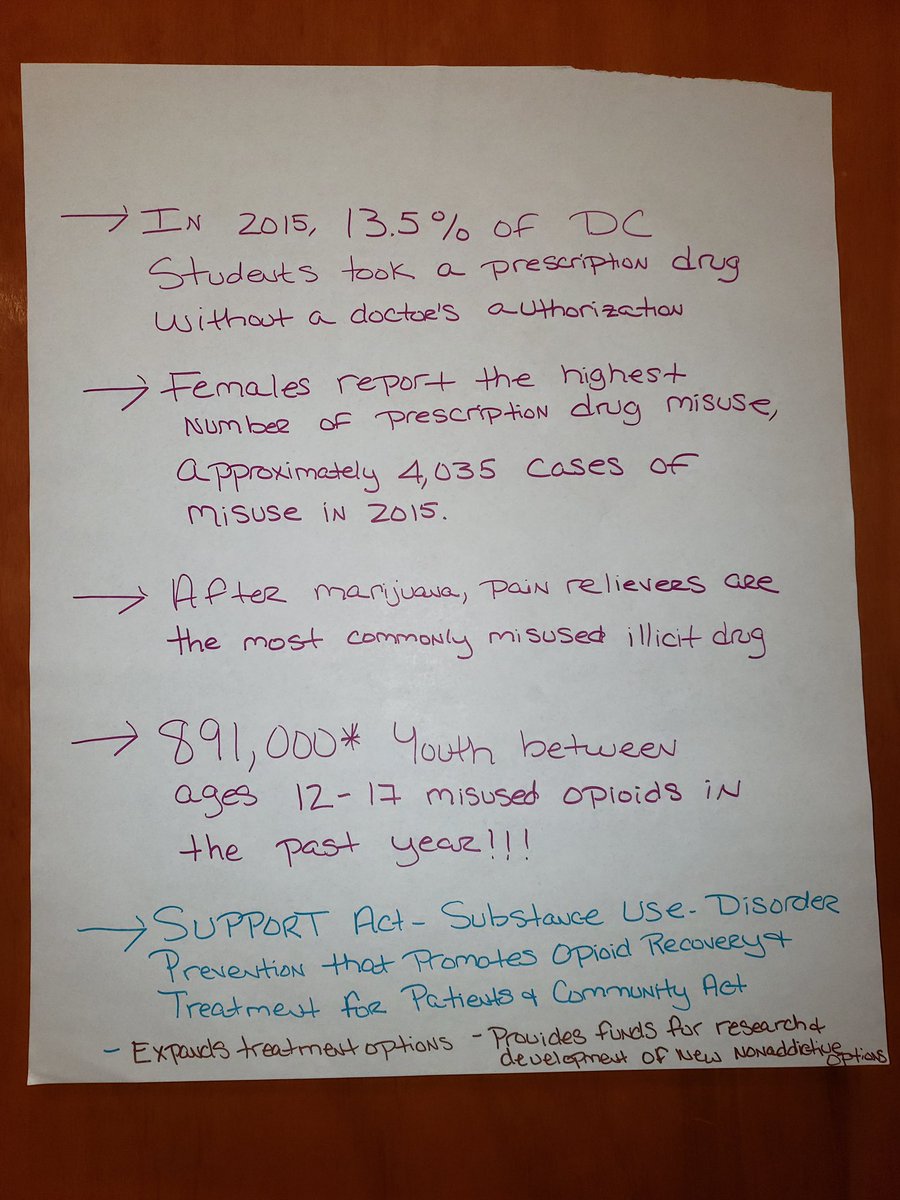 → In 2015, 13.5% of DC
Students took a prescription drug
without a doctor's authorization
→ Females report the highest
number of prescription drug misuse,
approximately 4,035 cases of
misuse in 2015.
→ After marijuana, pain relievers are
the most commonly misused illicit drug
→ 891,000* Youth between
ages 12-17 misused opioids in
the past year!!!
→ SUPPORT Act - Substance Use-Disorder
Prevention that Promotes Opioid Recovery &
Treatment for Patients & Community Act
- Expands treatment options - Provides funds for research &
development of new nonaddictive
options